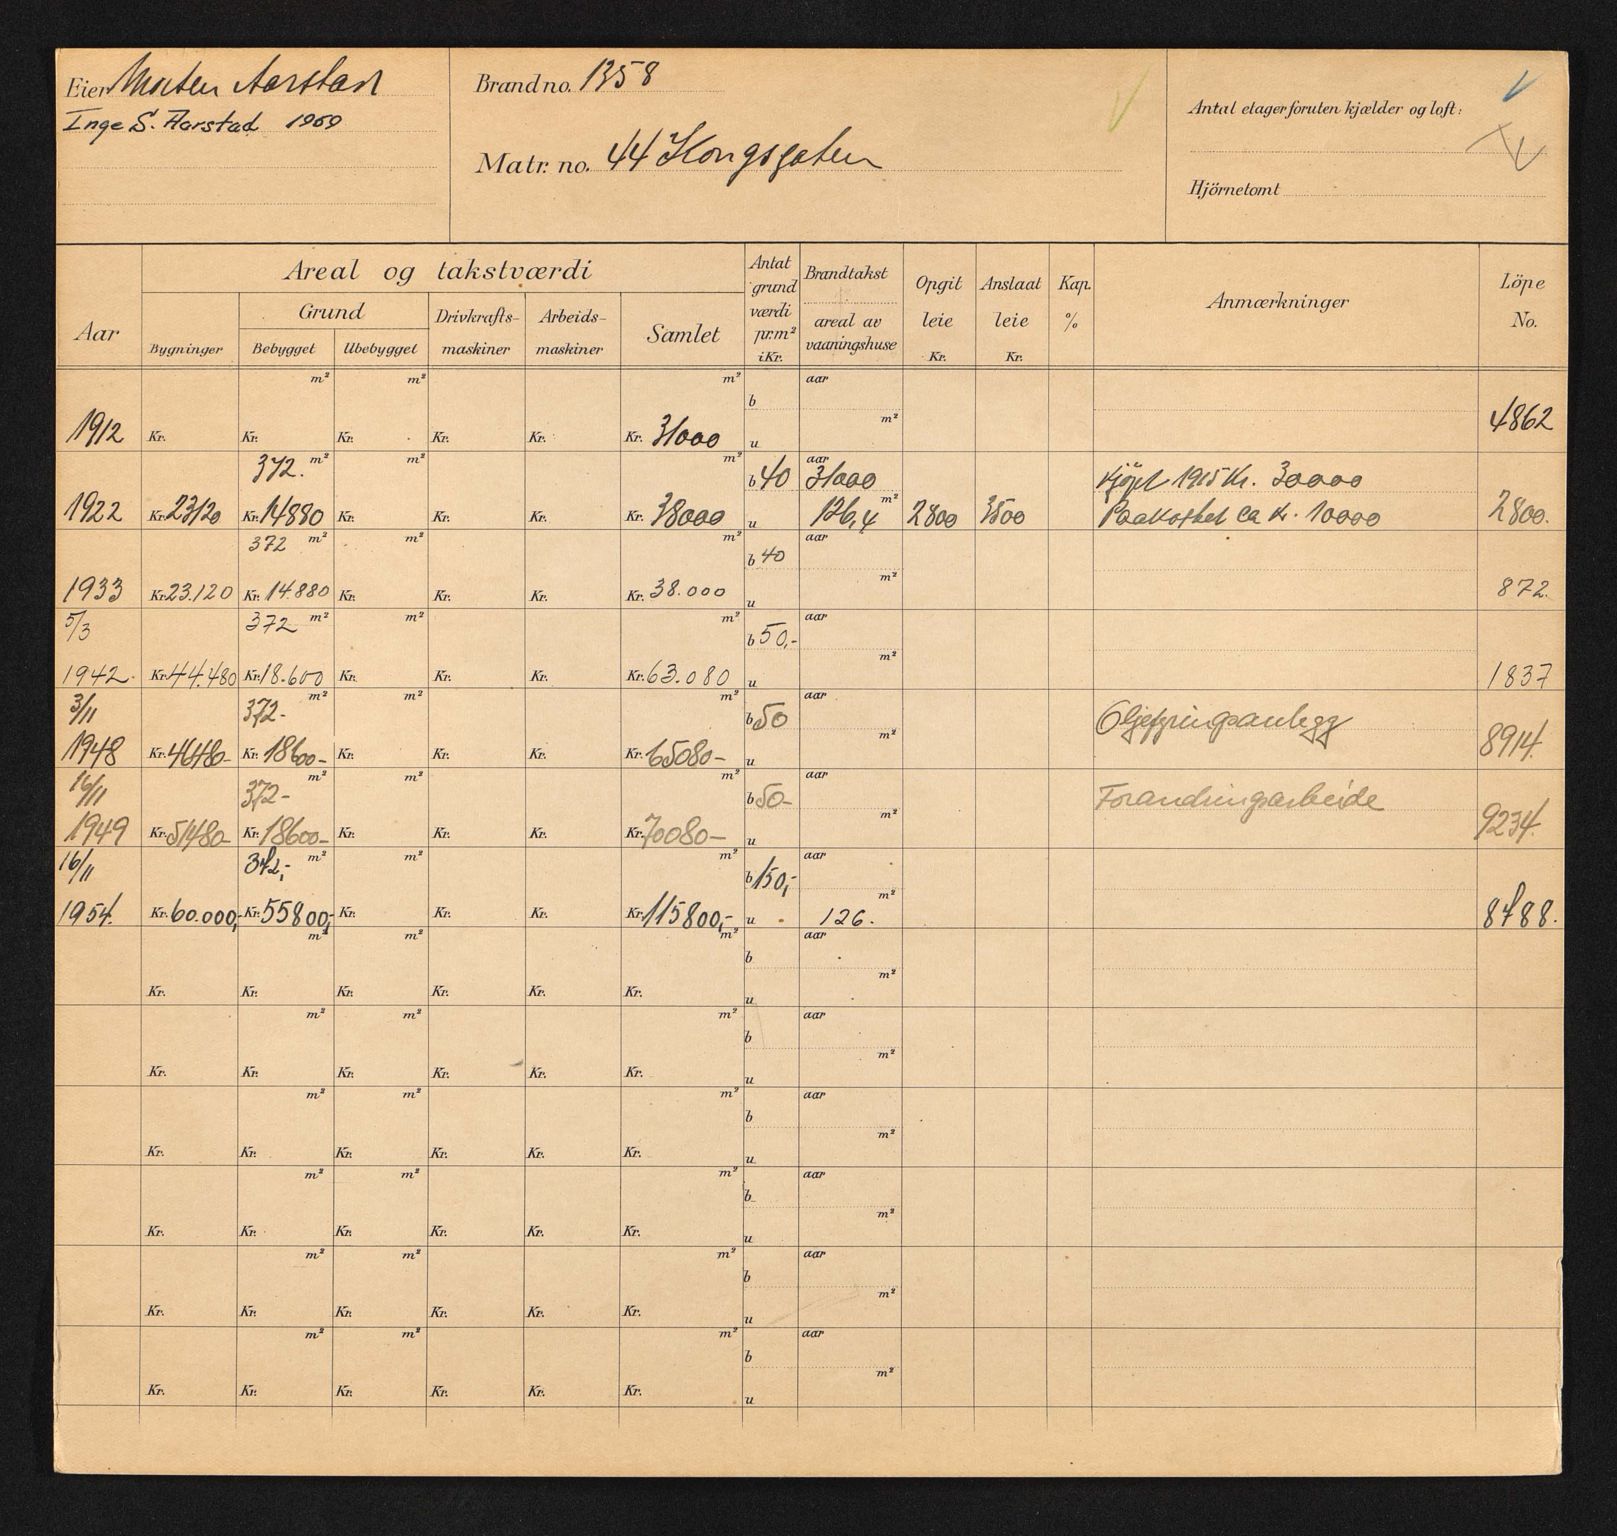 Eier Morten Aarstad
Inge S. Aarstad 1969
Brand no. 1358
Matr. no. 44 Kongsgaten
Antal etager foruten kjælder og loft:
Hjörnetomt
Aar
Areal og takstværdi
Grund
Bygninger
Bebygget
Ubebygget
Drivkrafts-
maskiner
Arbeids-
maskiner
Samlet
Antat
grund
værdi
pr.m²
i Kr.
Brandtakst
areal av
vaaningshuse
Opgit
leie
Kr.
Anslaat
leie
Kr.
Kap.
%
Anmærkninger
Löpe
No.
m² m² m² b aar
1912 Kr. Kr. Kr. Kr. Kr. Kr. 31000 u m² 4862
372. m² m² m² b 40 aar 31000 Kjöpt 1915 Kr. 30000
1922 Kr. 23120 Kr. 14880 Kr. Kr. Kr. Kr. 38000 u 126,4 m² 2800 3500 Paakostet ca Kr. 10000 2800.
372 m² m² m² b 40 aar
1933 Kr. 23.120 Kr. 14.880 Kr. Kr. Kr. Kr. 38.000 u m² 872.
5/3 372 m² m² m² b 50,- aar
1942. Kr. 44.480 Kr. 18.600 Kr. Kr. Kr. Kr. 63.080 u m² 1837
3/11 372- m² m² m² b 50 aar Oljefyringsanlegg
1948 Kr. 46480- Kr. 18600- Kr. Kr. Kr. Kr. 65080- u m² 8914.
16/11 372- m² m² m² b 50- aar Forandringsarbeide
1949 Kr. 51480- Kr. 18600- Kr. Kr. Kr. Kr. 70080- u m² 9234.
16/11 372,- m² m² m² b 150,- aar
1954. Kr. 60.000,- Kr. 55800,- Kr. Kr. Kr. Kr. 115800,- u 126. m² 8788.
m² m² m² b aar
Kr. Kr. Kr. Kr. Kr. Kr. u m²
m² m² m² b aar
Kr. Kr. Kr. Kr. Kr. Kr. u m²
m² m² m² b aar
Kr. Kr. Kr. Kr. Kr. Kr. u m²
m² m² m² b aar
Kr. Kr. Kr. Kr. Kr. Kr. u m²
m² m² m² b aar
Kr. Kr. Kr. Kr. Kr. Kr. u m²
m² m² m² b aar
Kr. Kr. Kr. Kr. Kr. Kr. u m²